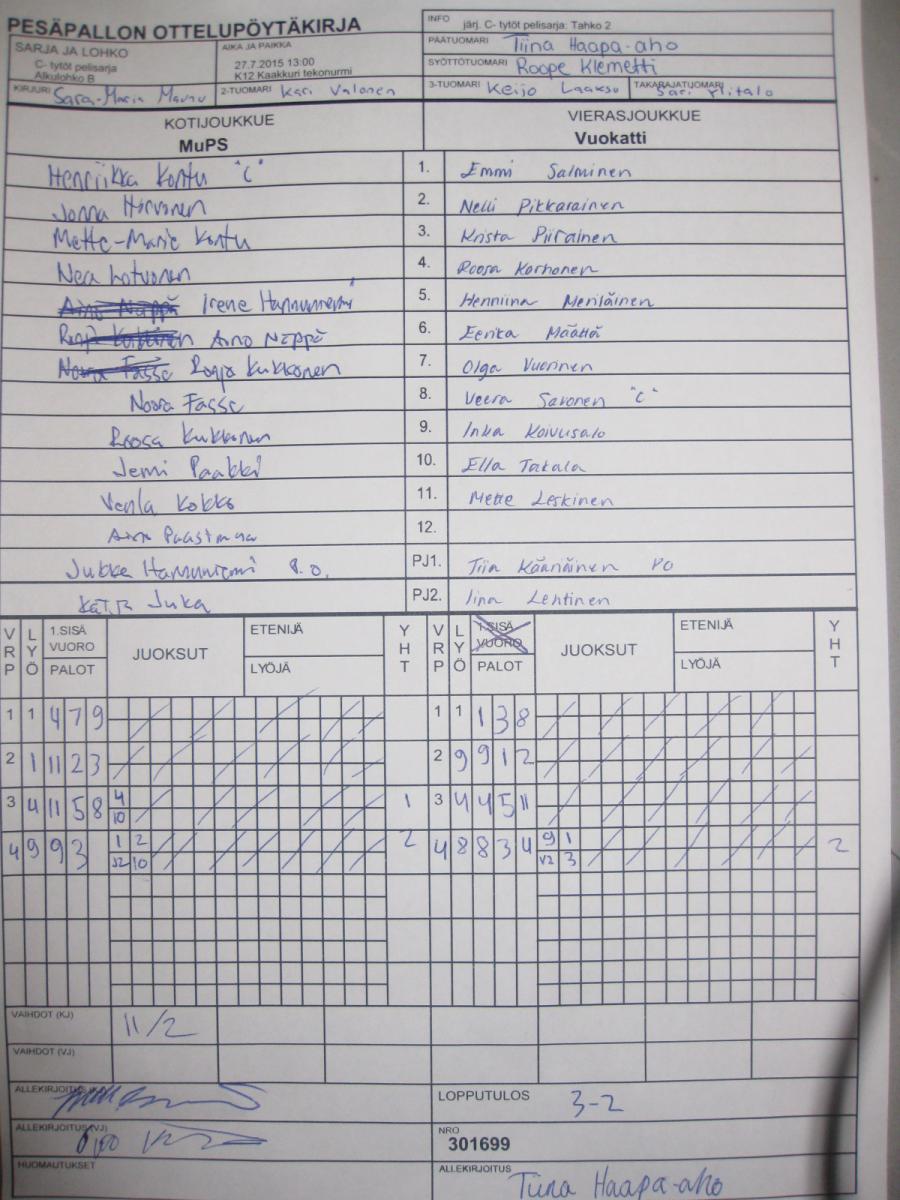 PESÄPALLON OTTELUPÖYTÄKIRJA
INFO järj. C- tytöt pelisarja: Tahko 2
SARJA JA LOHKO
C- tytöt pelisarja
Alkulohko B
AIKA JA PAIKKA
27.7.2015 13:00
K12 Kaakkuri tekonurmi
PÄÄTUOMARI Tiina Haapa-aho
SYÖTTÖTUOMARI Roope Klemetti
KIRJURI Sara-Maria
2-TUOMARI Kari Valonen
3-TUOMARI Keijo Laakso
TAKARAJATUOMARI Sari Ylitalo
KOTIJOUKKUE
MuPS
VIERASJOUKKUE
Vuokatti
Henriikka Kontu "C" 1. Emmi Salminen
Jonna Hirvonen 2. Nelli Pikkarainen
Mette-Marie Kontu 3. Krista Piirainen
Nea Lotvonen 4. Roosa Korhonen
Aino Neppä Irene Hannuniemi 5. Henniina Meriläinen
Ronja Kukkonen Aino Neppä 6. Eerika Määttä
Noora Fasse Ronja Kukkonen 7. Olga Vuorinen
Noora Fasse 8. Veera Savonen "C"
Roosa Kukkonen 9. Inka Koivusalo
Jemi Paakki 10. Ella Takala
Venla Kokko 11. Mette Leskinen
12.
Jukka Hannuniemi P.J. PJ1. Tiia Kääriäinen PJ
Katja Juka PJ2. Iina Lehtinen
VRP LYÖ 1.SISÄ VUORO PALOT JUOKSUT ETENIJÄ LYÖJÄ YHT VRP LYÖ 1.SISÄ VUORO PALOT JUOKSUT ETENIJÄ LYÖJÄ YHT
1 1 4 7 9 1 1 1 3 8
2 1 11 2 3 2 9 9 1 2
3 4 11 5 8 4 1 3 4 4 5 11
10
4 9 9 3 1 2 2 4 8 8 3 4 9 1 2
J2 10 V2 3
VAIHDOT (KJ) 11/2
VAIHDOT (VJ)
ALLEKIRJOITUS (KJ)
LOPPUTULOS 3-2
ALLEKIRJOITUS (VJ)
NRO
301699
HUOMAUTUKSET
ALLEKIRJOITUS Tiina Haapa-aho